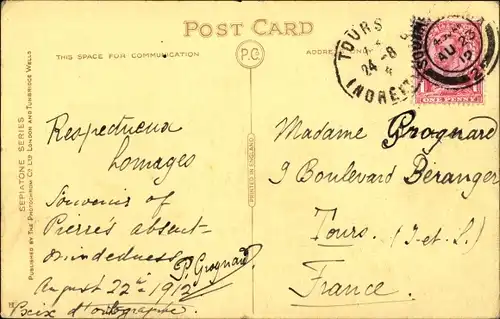 POST CARD
THIS SPACE FOR COMMUNICATION
P.C.
ADDRESS ONLY
TOURS
24-8
(INDRE-ET-
AU
12
ONE PENNY
SEPIATONE SERIES
PUBLISHED BY THE PHOTOCHROM CO LTD LONDON AND TUNBRIDGE WELLS
PRINTED IN ENGLAND
Respectueux
homages
Souvenir of
Pierre's absent-
mindedness
P. Grognard
August 22nd 1912
Prix d'ortographe.
Madame Grognard
9 Boulevard Béranger
Tours. (I-et-L.)
France.